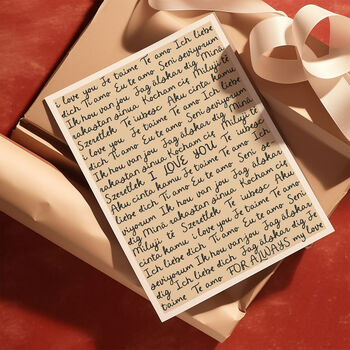 i love you Je taime Te amo Ich liebe
dich Ti amo Eu te amo Seni seviyorum
Ik hou van jou Jag älskar dig Minä
rakastan sinua Kocham cię Milujī tě
Szeretlek Te iubesc Aku cinta kamu
i love you Je taime Te amo Ich liebe
dich Ti amo Eu te amo Seni seviyorum
Ik hou van jou Jag älskar dig Minä
rakastan sinua Kocham cię Milujī
tě Szeretlek I LOVE YOU Te iubesc Aku
cinta kamu i love you Je taime Te amo Ich
liebe dich Ti amo Eu te amo Seni
seviyorum Ik hou van jou Jag älskar
dig Minä rakastan sinua Kocham cię
Milujī tě Szeretlek Te iubesc Aku
cinta kamu i love you Je taime Te amo
Ich liebe dich Ti amo Eu te amo Seni
seviyorum Ik hou van jou Jag älskar
dig Ich liebe dich Jag älskar dig Je
taime Te amo FOR ALWAYS my love